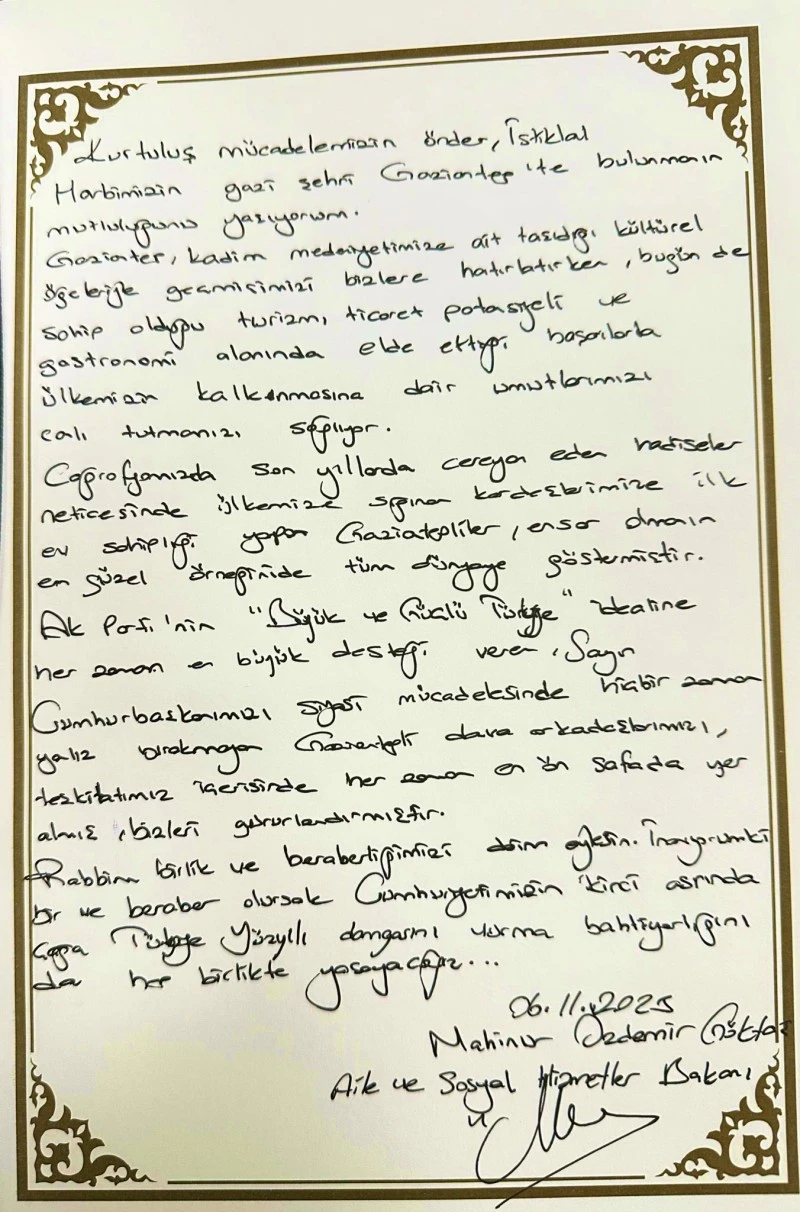 Kurtuluş mücadelemizin önder, İstiklal
Harbimizin gazi şehri Gaziantep'te bulunmanın
mutluluğunu yaşıyorum.
Gaziantep, kadim medeniyetimize ait taşıdığı kültürel
öğeleriyle geçmişimizi bizlere hatırlatırken, bugün de
sahip olduğu turizm, ticaret potansiyeli ve
gastronomi alanında elde ettiği başarılarla
ülkemizin kalkınmasına dair umutlarımızı
canlı tutmamızı sağlıyor.
Coğrafyamızda son yıllarda cereyan eden hadiseler
neticesinde ülkemize sığınan kardeşlerimize ilk
ev sahipliği yapan Gaziantepliler, ensar olmanın
en güzel örneğinide tüm dünyaya göstermiştir.
Ak Parti'nin "Büyük ve Güçlü Türkiye" idealine
her zaman en büyük desteği veren, Sayın
Cumhurbaşkanımızı siyasi mücadelesinde hiçbir zaman
yalnız bırakmayan Gaziantepli dava arkadaşlarımızı,
teşkilatımız içerisinde her zaman en ön safada yer
almış, bizleri gururlandırmıştır.
Rabbim birlik ve beraberliğimizi daim eylesin. İnanıyorumki
bir ve beraber olursak Cumhuriyetimizin ikinci asrında
çağa Türkiye Yüzyılı damgasını vurma bahtiyarlığını
da hep birlikte yaşayacağız...
06.11.2025
Mahinur Özdemir Göktaş
Aile ve Sosyal Hizmetler Bakanı